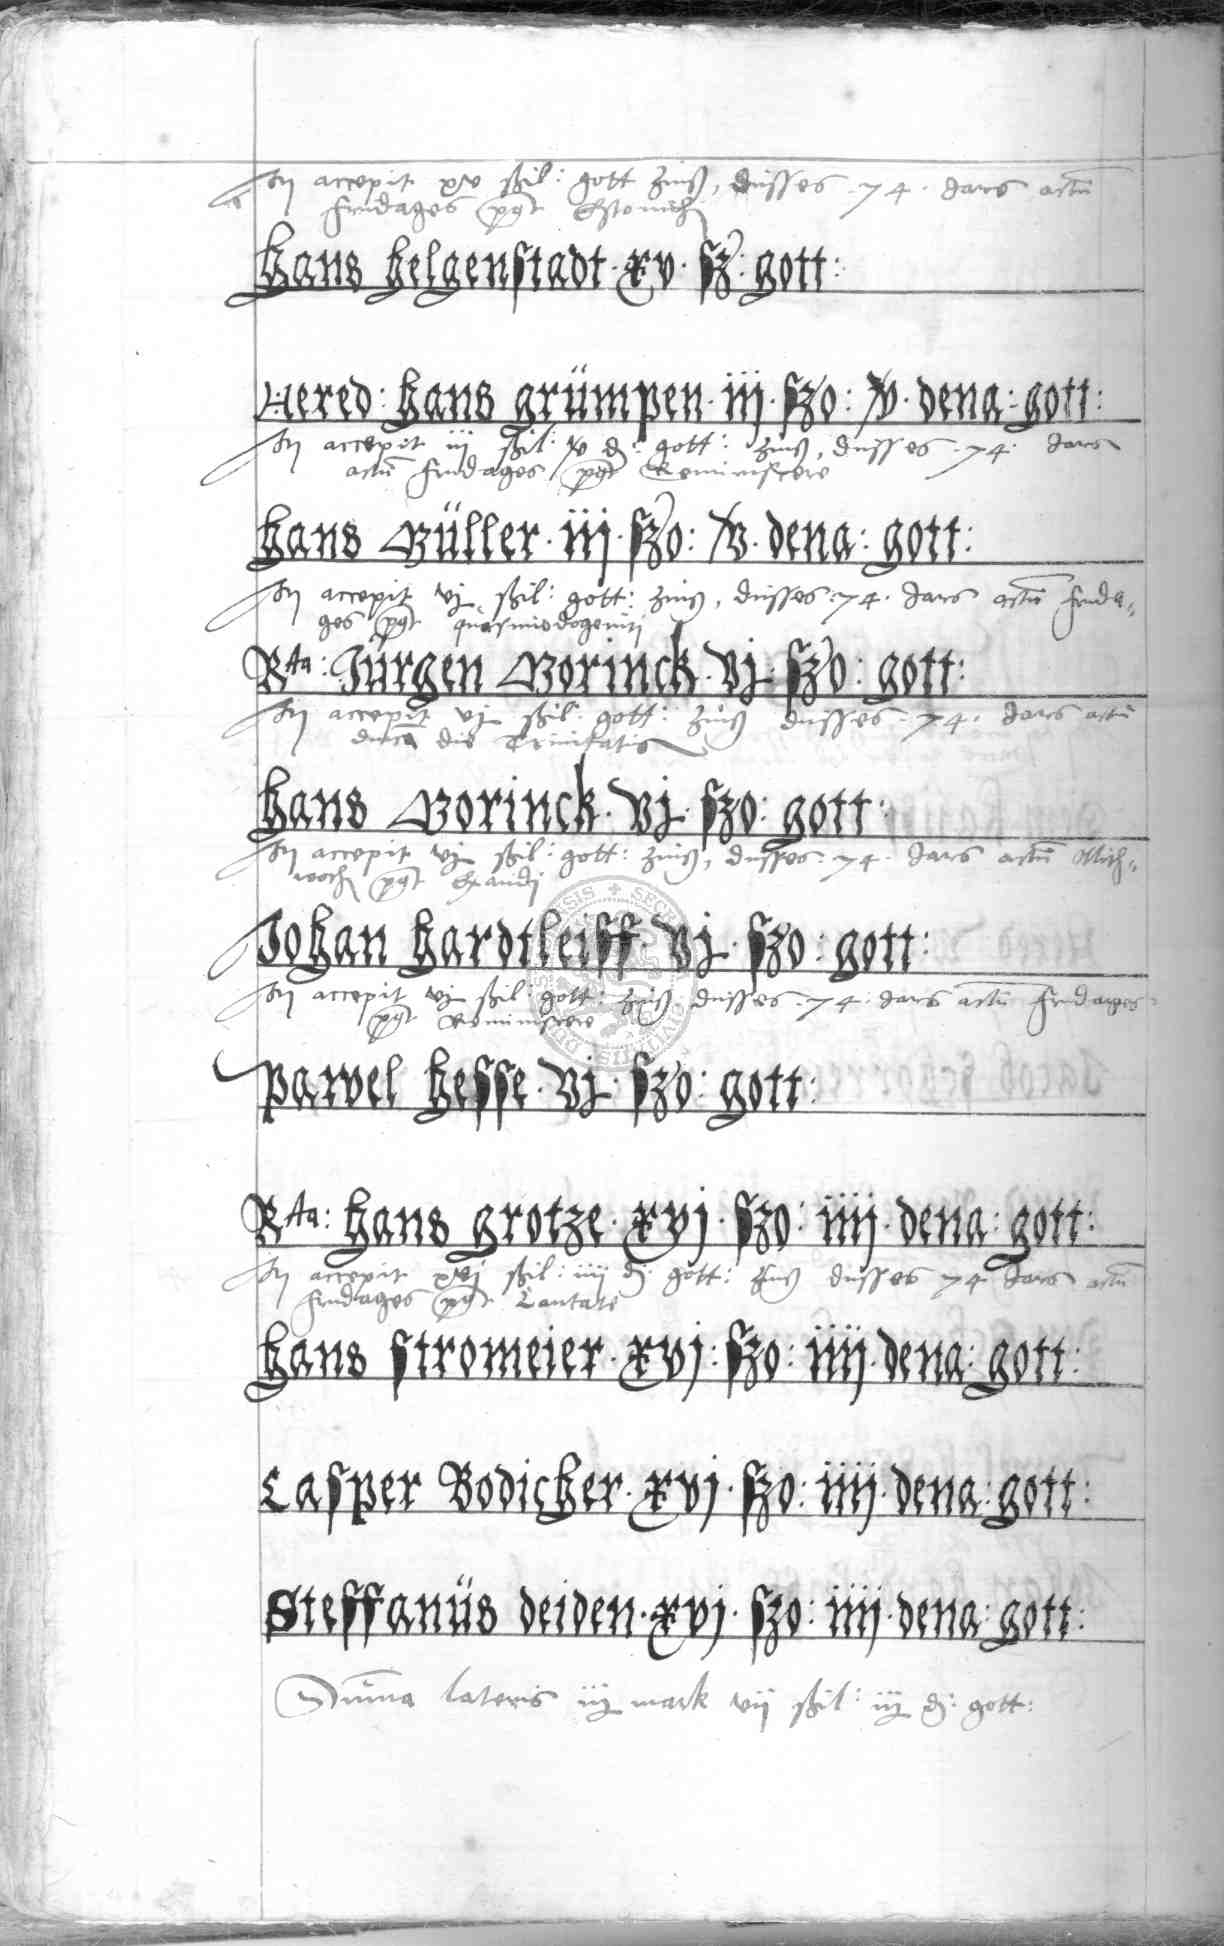 Hu accepit xv ßil: gott Zinß, dusses .74. Jars actũ
Frydages pꝯt Estomihi
Hans Helgenstadt · xv · sz: gott:
Hered: Hans Grümpen · iij · szo: v · dena: gott:
Hu accepit iij ßil: v d: gott: Zinß, dusses .74. Jars
actũ Frydages pꝯt Reminiscere
Hans Müller · iij · szo: v · dena: gott:
Hu accepit vj ßil: gott: Zinß, dusses .74. Jars actũ Fryda-
ges pꝯt quasimodogeniti
Rta: Jürgen Worinck · vj · szo: gott:
Hu accepit vj ßil: gott: Zinß dusses .74. Jars actũ
die Trinitatis
Hans Worinck · vj · szo: gott:
Hu accepit vj ßil: gott: Zinß, dusses .74. Jars actũ Mith-
woch pꝯt Exaudj
Johan Hardtleiff · vj · szo: gott:
Hu accepit vj ßil: gott: Zinß dusses .74. Jars actũ Frydages
pꝯt Reminiscere
Pawel Hesse · vj · szo: gott:
Rta: Hans Grotze · xvj · szo: iiij · dena: gott:
Hu accepit xvj ßil: iiij d: gott: Zinß dusses 74 Jars actũ
Frydages pꝯt Cantate
Hans Stromeier · xvj: szo: iiij · dena: gott:
Casper Bodicher · xvj · szo: iiij · dena: gott:
Steffanüs Deiden · xvj · szo: iiij · dena: gott:
Sum̃a lateris iij mark vij ßil: iij d: gott: